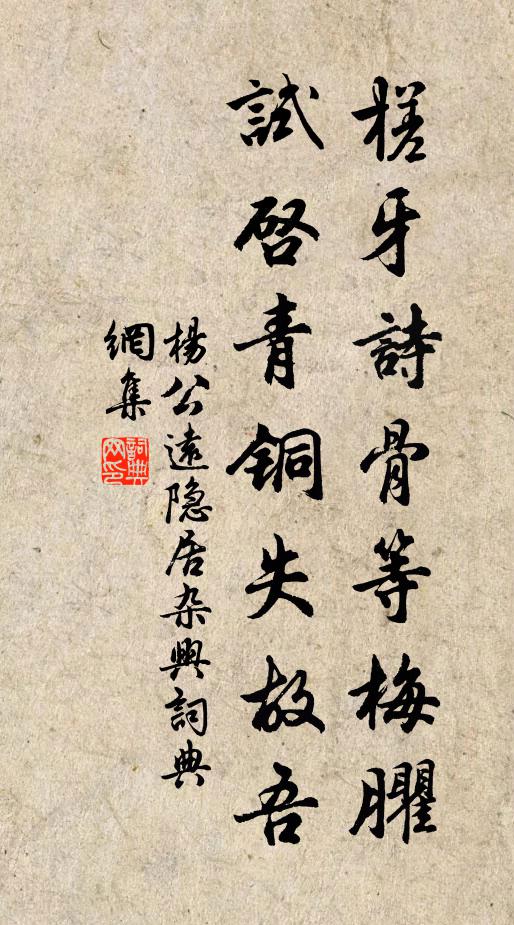 槎牙詩骨等梅臞
試啓青銅失故吾
楊公遠隐居杂興詞典
網集
詞典网印